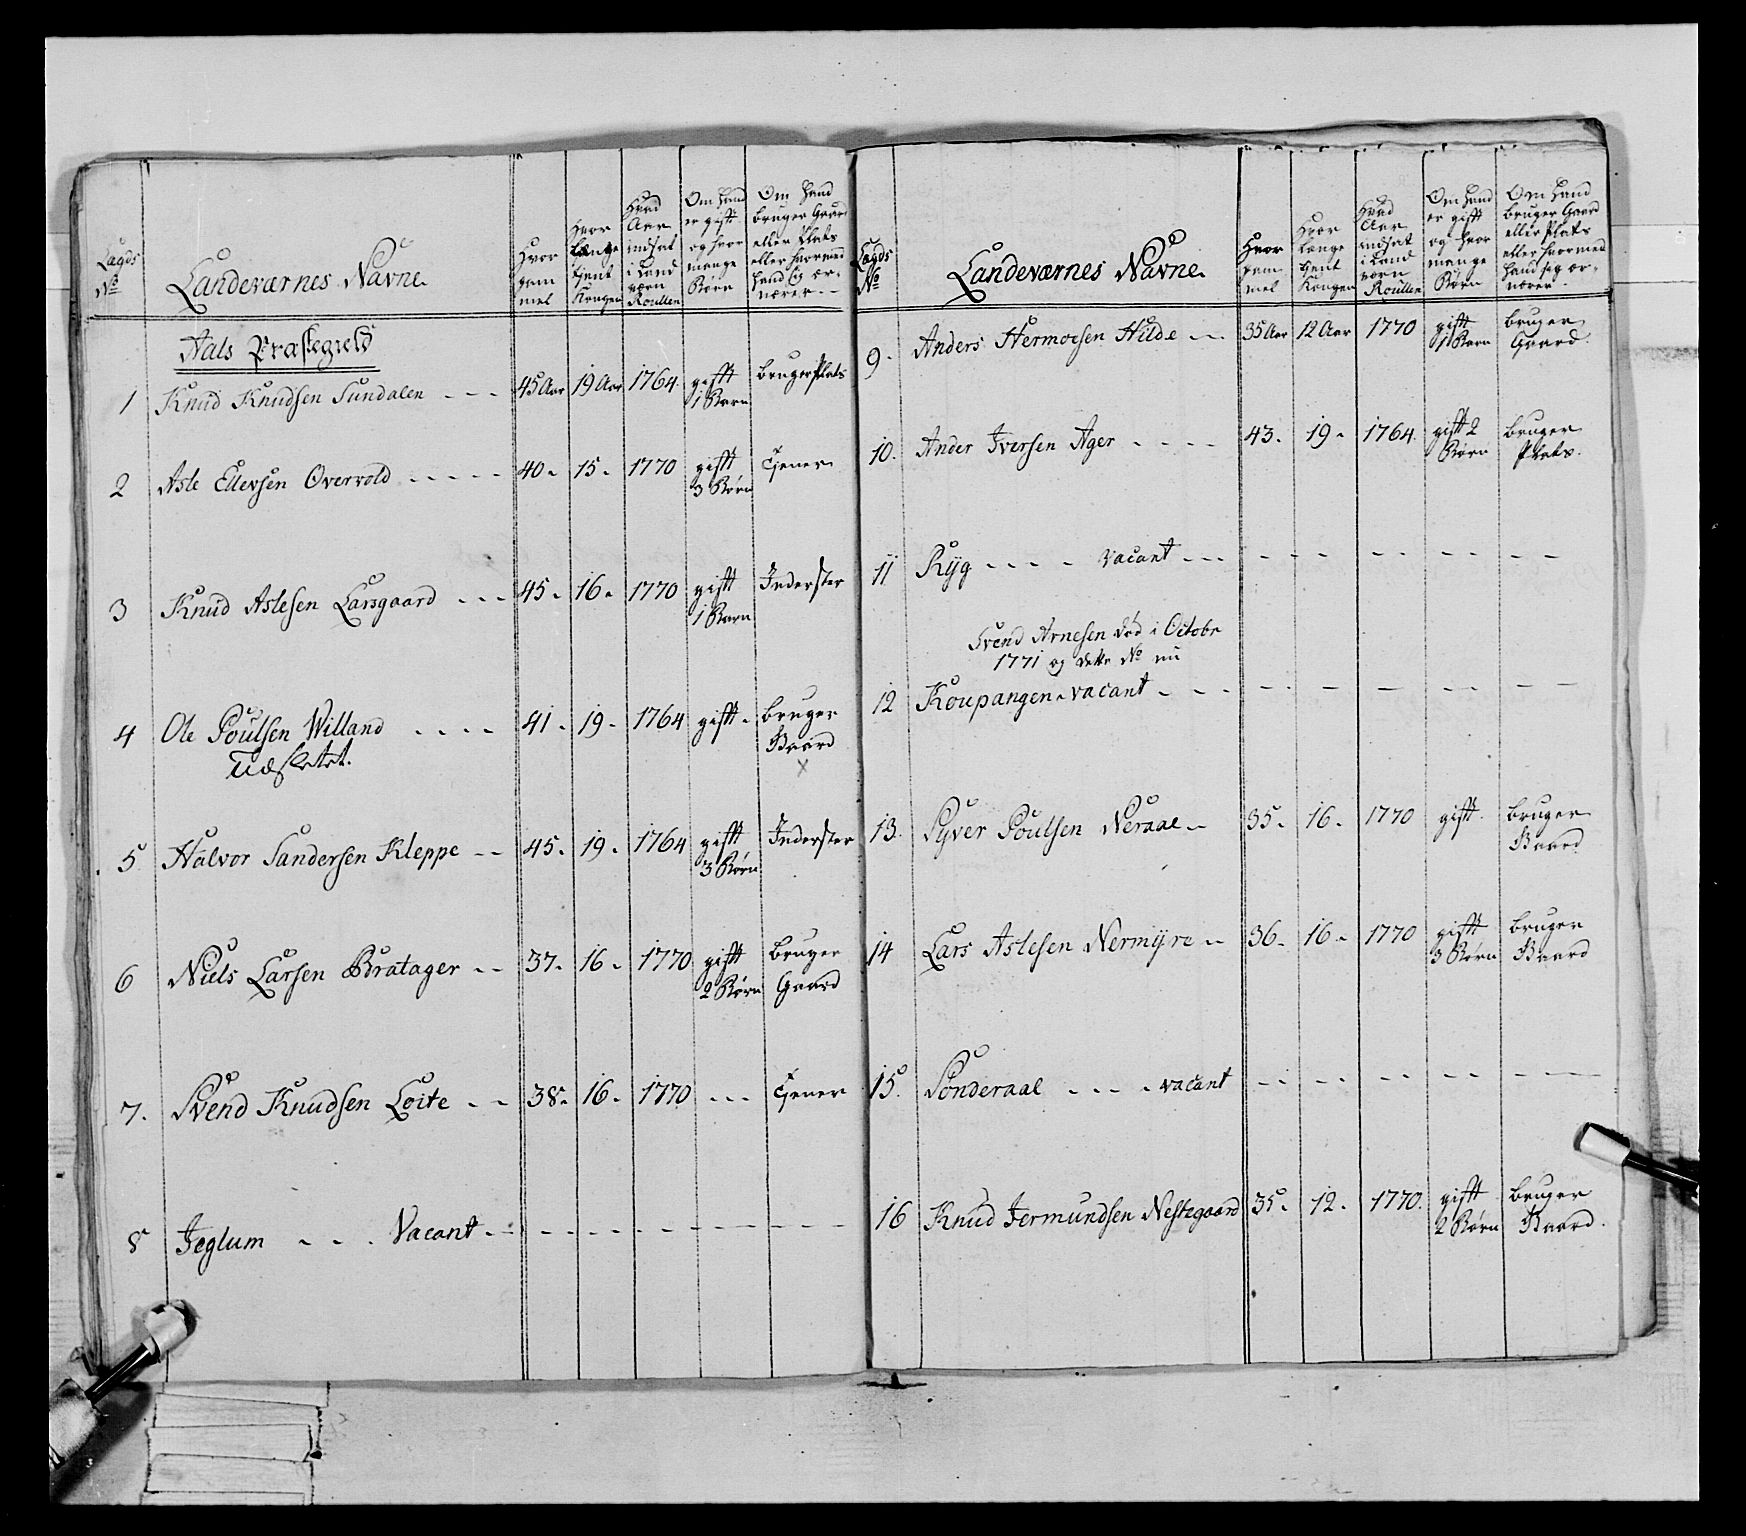 Lægds No
Landeværnes Navne.
Hvor gammel
Hvor Længe tient Kongen
Hvad Aar indsat i Landværn Roullen
Om hand er gift og hvor mange Børn
Om hand bruger Gaard eller Plats eller hvormed hand sig ernærer
Aals Præstegield
1 Knud Knudsen Sundalen --- 45 Aar 19 Aar 1764. gifft 1 Barn bruger Plats
2 Asle Ellevsen Overvold ----- 40- 15- 1770 gifft 3 Børn Tjener
3 Knud Aslesen Larsgaard --- 45- 16- 1770 gifft 1 Barn Inderster
4 Ole Poulsen Willand ---- 41- 19- 1764 gifft- bruger Gaard
Udsletet. x
5 Halvor Sandersen Kleppe -- 45- 19- 1764 gifft 3 Børn Inderster
6 Niels Larsen Bratager -- 37- 16- 1770 gifft 2 Børn bruger Gaard
7. Svend Knudsen Loite -- 38- 16- 1770 --- Tjener
8 Jeglum --- Vacant
Lægds No
Landeværnes Navne.
Hvor gammel
Hvor længe tient Kongen
Hvad Aar indsat i Landværn Roullen
Om hand er gifft og hvor mange Børn
Om hand bruger Gaard eller Plats eller hvormed hand sig ernærer.
9. Anders Hermoesen Hilde -- 35 Aar 12 Aar 1770 gifft 1 Barn bruger Gaard.
10. Ander Iversen Ager ---- 43- 19- 1764. gifft 2 Børn bruger Plats.
11 Ryg ---- vacant ---
Svend Arnesen død i Octobr
1771 og dette No nu
12 Koupangen - vacant ---
13. Syver Poulsen Neraal - 35- 16- 1770 gift. bruger Gaard
14 Lars Aslesen Nermyre -- 36- 16- 1770 gifft 3 Børn bruger Gaard
15. Sonderaal ---- vacant
16 Knud Jermundsen Nestegaard 35- 12- 1770. gifft 2 Børn bruger Gaard.